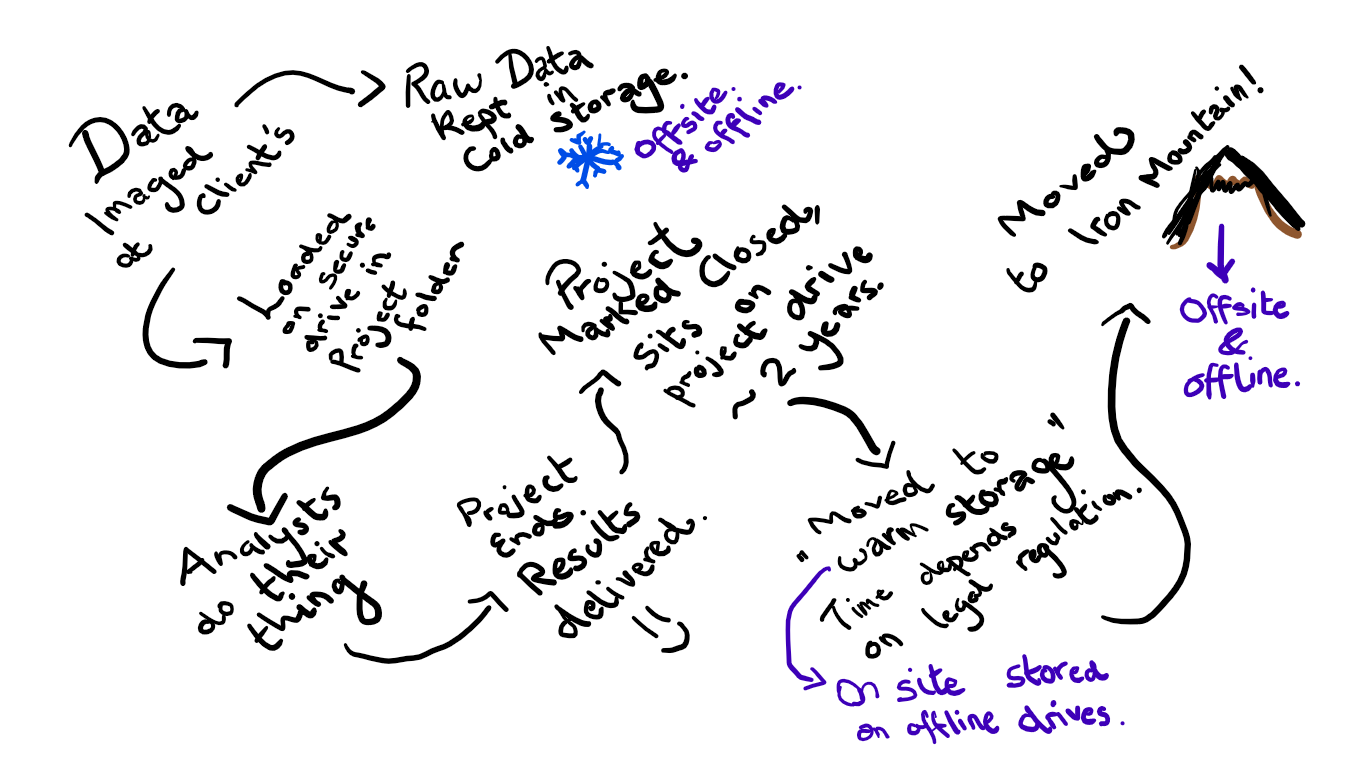 Data
Imaged
at Client's
Raw Data
Kept in
Cold storage.
Offsite.
& offline.
Loaded
on secure
drive in
Project
folder
Analysts
do their
thing
Project
Ends.
Results
delivered.
=)
Project
Marked Closed,
Sits on
project drive
~ 2 years.
Moved to
"warm storage"
Time depends
on legal regulation.
On site stored
on offline drives.
Moved
to Iron Mountain!
Offsite
&
offline.